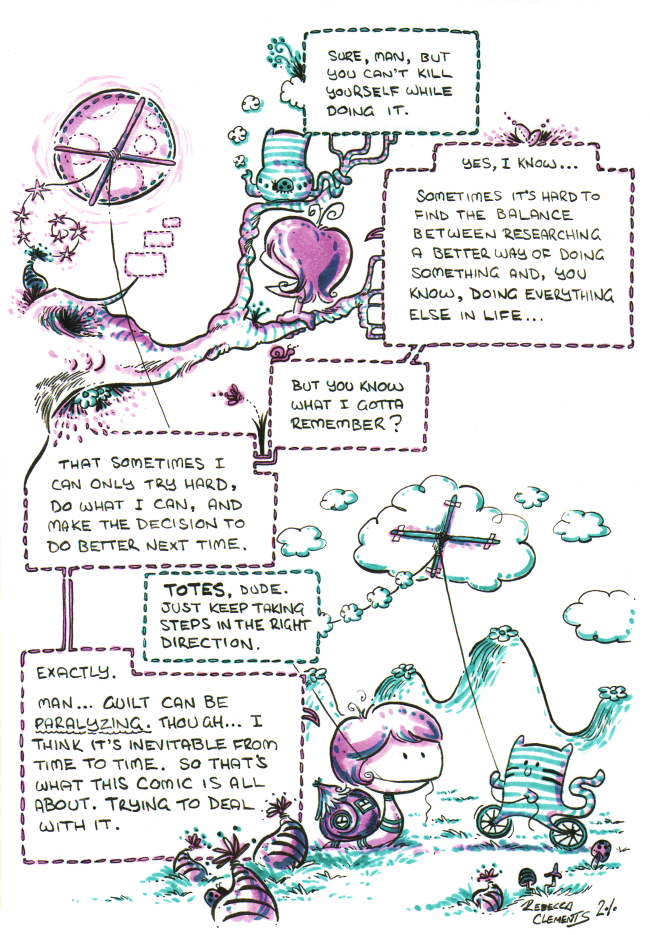 SURE, MAN, BUT
YOU CAN'T KILL
YOURSELF WHILE
DOING IT.
YES, I KNOW...
SOMETIMES IT'S HARD TO
FIND THE BALANCE
BETWEEN RESEARCHING
A BETTER WAY OF DOING
SOMETHING AND, YOU
KNOW, DOING EVERYTHING
ELSE IN LIFE...
BUT YOU KNOW
WHAT I GOTTA
REMEMBER?
THAT SOMETIMES I
CAN ONLY TRY HARD,
DO WHAT I CAN, AND
MAKE THE DECISION TO
DO BETTER NEXT TIME.
TOTES, DUDE.
JUST KEEP TAKING
STEPS IN THE RIGHT
DIRECTION.
EXACTLY.
MAN... GUILT CAN BE
PARALYZING. THOUGH... I
THINK IT'S INEVITABLE FROM
TIME TO TIME. SO THAT'S
WHAT THIS COMIC IS ALL
ABOUT. TRYING TO DEAL
WITH IT.
REBECCA
CLEMENTS 2010